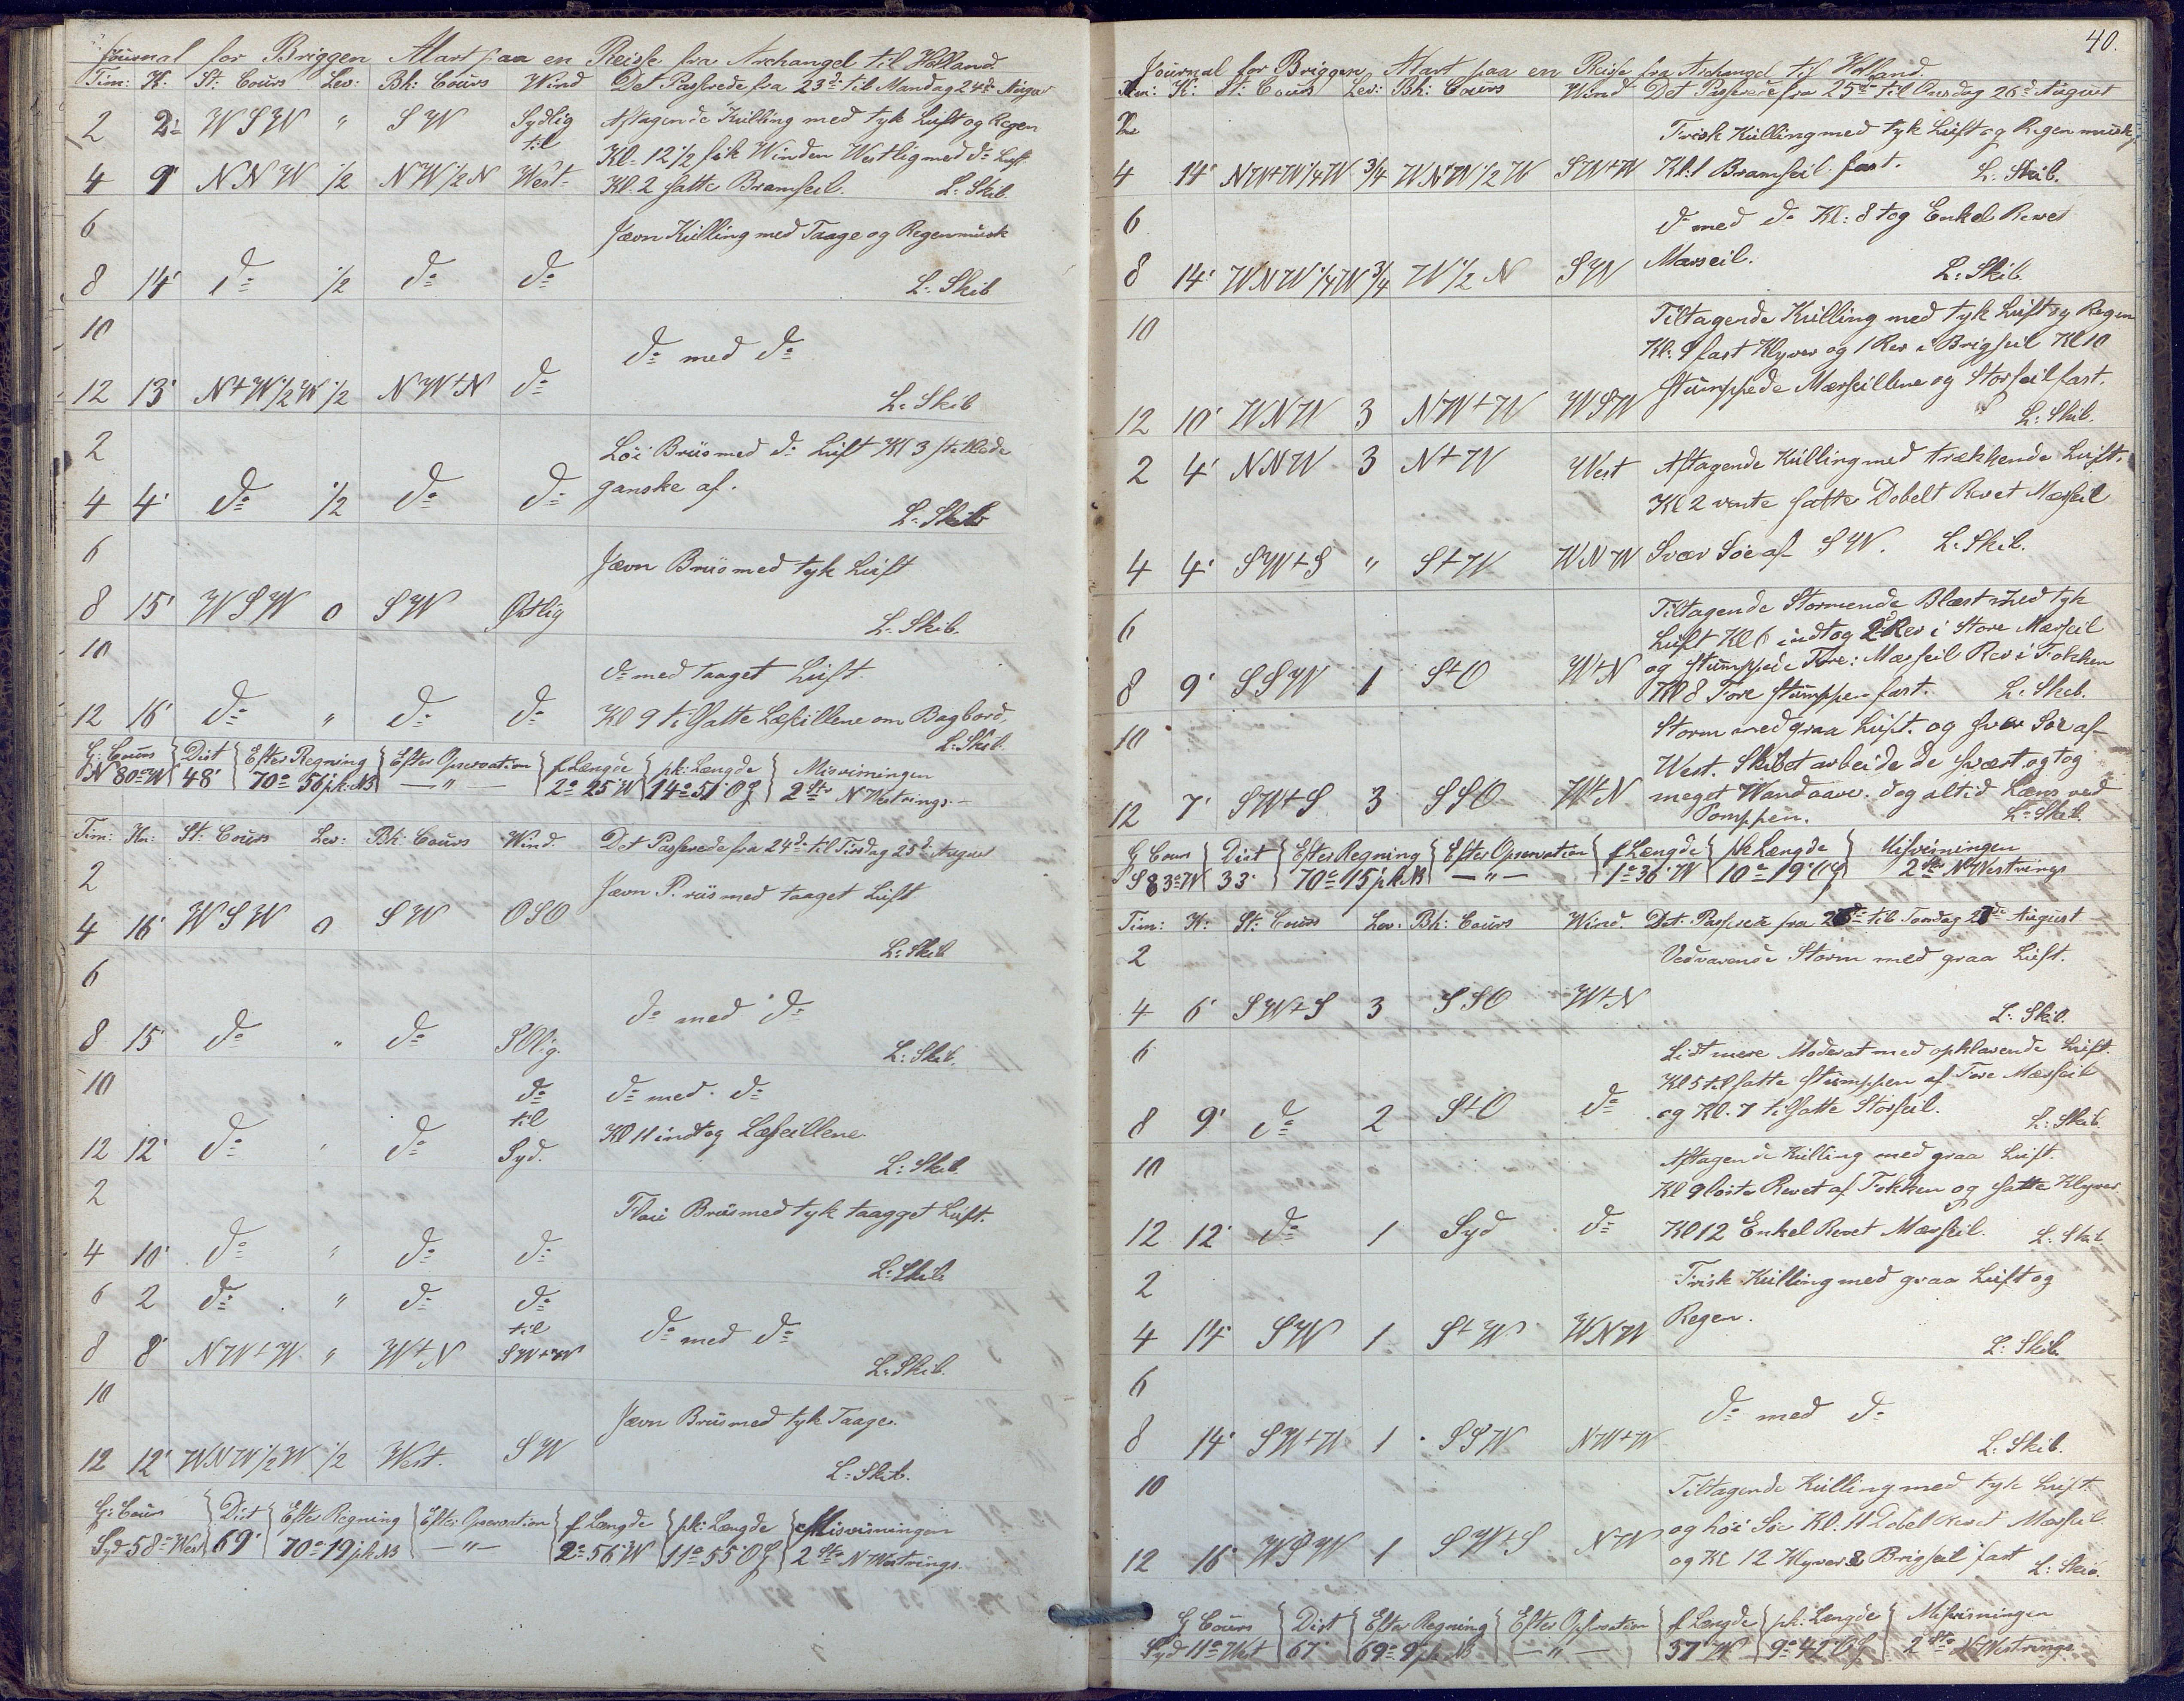 Journal for Briggen Alart paa en Reise fra Archangel til Holland.
Tim: K: St: Cours Lev: Bh: Cours Wind Det Passerede fra 23de til Mandag 24de August
2 2' WSW " SW Sydlig Aftagende Kulling med tyk Luft og Regen
til Kl. 12 1/2 fik Winden Westlig med do Luft
4 9' NNW 1/2 NW 1/2 N West. Kl. 2 satte Bramseil. L: Skib.
6 Jævn Kulling med Taage og Regenmusk
8 14' do 1/2 do do L: Skib
10 do med do
12 13' N+W 1/2 W 1/2 NW+N do L: Skib
2 Löi Briis med do Luft Kl 3 stillede
4 4' do 1/2 do do ganske af. L: Skib
6 Jævn Briis med tyk Luft
8 15' WSW 0 SW Østlig L: Skib.
10 do med taaget Luft.
12 16' do " do do Kl 9 tilsatte Læseillene om Bagbord.
L: Skib.
G: Cours Dist Efter Regning Efter Opservation f Længde pk: Længde Misvisningen
N 80° W 48' 70° 56' pk: NB — " — 2° 25' W 14° 51' OG 2 Str NWestrings.
Tim: Kn: St: Cours Lev: Bh: Cours Wind. Det Passerede fra 24de til Tirsdag 25de August
2 Jævn Briis med taaget Luft
4 16' WSW 0 SW OSO L: Skib
6 do med do
8 15' do " do SOlig. L: Skib.
10 do do med do
til
12 12' do " do Syd. Kl 11 indtog Læseillene
L: Skib.
2 Flau Briis med tyk taagget Luft.
4 10' do " do do L: Skib
6 2 do " do do
til do med do
8 8' NW+W " W+N SW+W L: Skib.
10 Jævn Briis med tyk Taage.
12 12' WNW 1/2 W 1/2 West. SW L: Skib.
G: Cours Dist Efter Regning Efter Opservation f Længde pk: Længde Misvisningen
Syd 58° West 69' 70° 19' pk NB — " — 2° 56' W 11° 55' OG 2 Str NWestrings.
40.
Journal for Briggen Alart paa en Reise fra Archangel til Holland.
Kn: K: St: Cours Lev: Bh: Cours Wind Det Passerede fra 25de til Onsdag 26de August
2 Frisk Kulling med tyk Luft og Regen musk
4 14' NW+W 1/4 W 3/4 WNW 1/2 W SW+W Kl: 1 Bramseil fast. L: Skib.
6 do med do Kl: 8 tog Enkel Revet
8 14' WNW 1/4 W 3/4 W 1/2 N SW Marseil. L: Skib
10 Tiltagende Kulling med tyk Luft og Regen
Kl: 9 fast Klyver og 1 Rev i Brigseil Kl 10
Stumppede Mærseillene og Storseil fast.
12 10' WNW 3 NW+W WSW L: Skib.
2 4' NNW 3 N+W West Aftagende Kulling med trækkende Luft.
Kl 2 vente satte Dobelt Revet Mærseil
4 4' SW+S " S+W WNW Svær Söe af SW. L: Skib.
6 Tiltagende Stormende Blæst med tyk
Luft Kl 6 indtog 2d Rev i Store Mærseil
og stumppede Fore: Mærseil Rev i Fokken
8 9' SSW 1 S+O W+N Kl 8 Fore stumppen fast. L: Skib.
10 Storm med graa Luft. og svær Söe af
West. Skibet arbeidede svært og tog
12 7' SW+S 3 SSO W+N meget Wand over. dog altid Læns ved
Pomppen. L: Skib.
G Cours Dist Efter Regning Efter Opservation f Længde pk Længde Misvisningen
S 83° W 33' 70° 15' pk NB — " — 1° 36' W 10° 19' OG 2 Str NWestrings
Tim: K: St: Cours Lev: Bh: Cours Wind. Det Passerede fra 26de til Torsdag 27de August
2 Vedvarende Storm med graa Luft.
4 6' SW+S 3 SSO W+N L: Skib.
6 Lidt mere Moderat med opklarende Luft.
Kl 5 tilsatte stumppen af Fore Mærseil
8 9' do 2 S+O do og Kl. 7 tilsatte Storseil. L: Skib.
10 Aftagende Kulling med graa Luft.
Kl 9 löste Revet af Fokken og satte Klyver
12 12' do 1 Syd do Kl 12 Enkel Revet Mærseil. L: Skib.
2 Frisk Kulling med graa Luft og
4 14' SW 1 S+W WNW Regen. L: Skib.
6 do med do
8 14' SW+W 1 SSW NW+W L: Skib.
10 Tiltagende Kulling med tyk Luft
og höi Söe Kl. 11 Dobel Revet Mærseil.
12 16' WSW 1 SW+S NW og Kl 12 Klyver & Brigseil fast L: Skib.
G Cours Dist Efter Regning Efter Opservation f Længde pk: Længde Misvisningen
Syd 11° West 67' 69° 9' pk NB — " — 37' W 9° 42' OG 2 Str NWestrings.